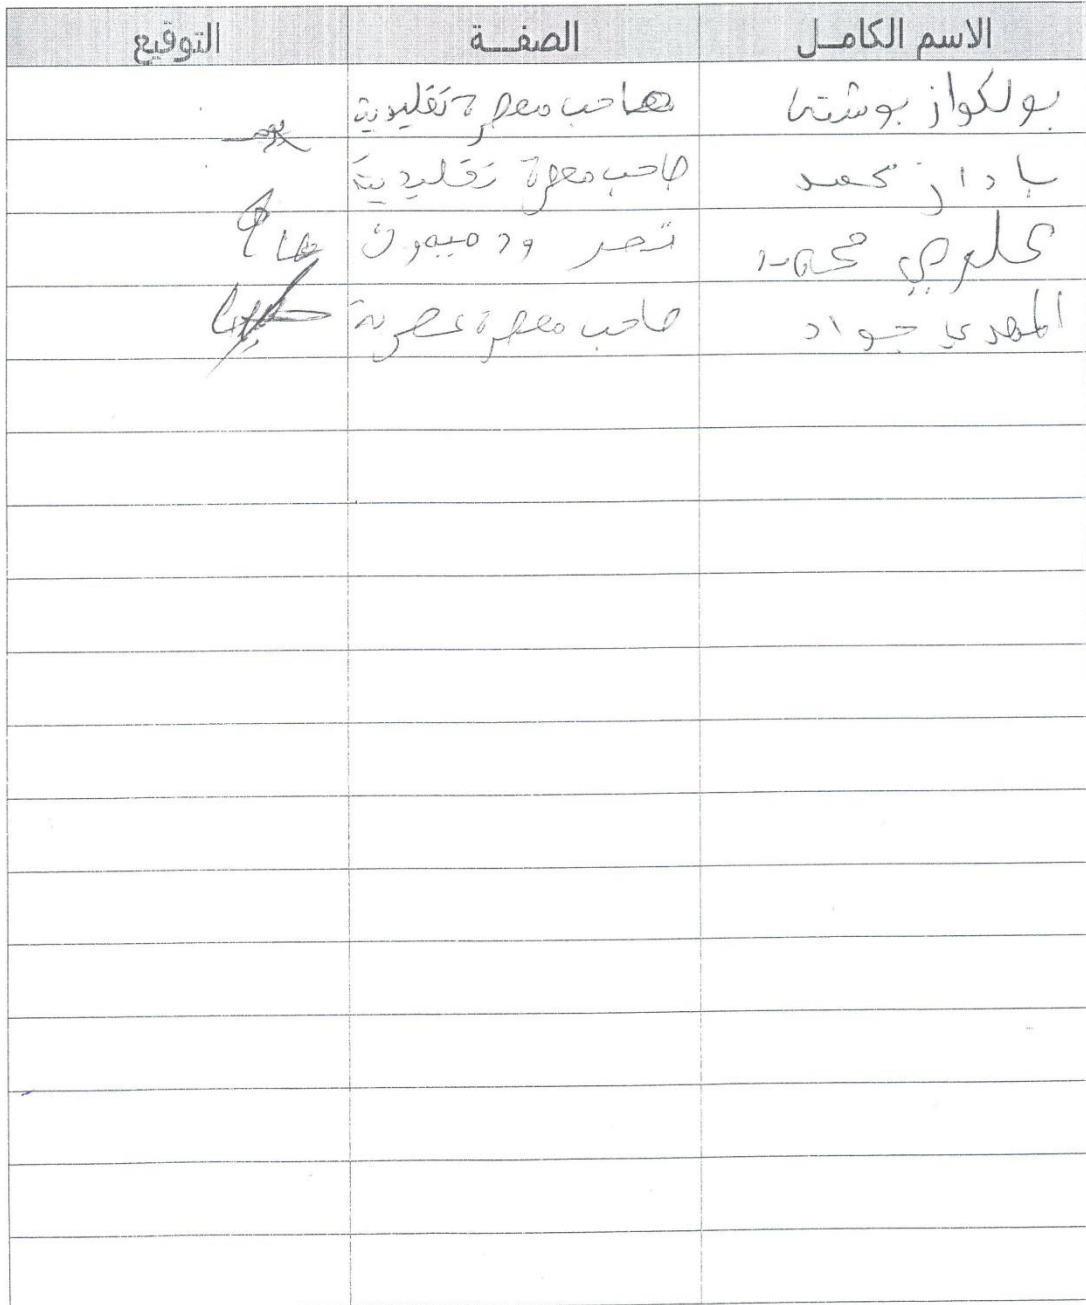 الاسم الكامل الصفة التوقيع
بولكواز بوشتى صاحب معصرة تقليدية
بادار محمد صاحب معصرة تقليدية
علوي محمد
المهدي جواد صاحب معصرة عصرية